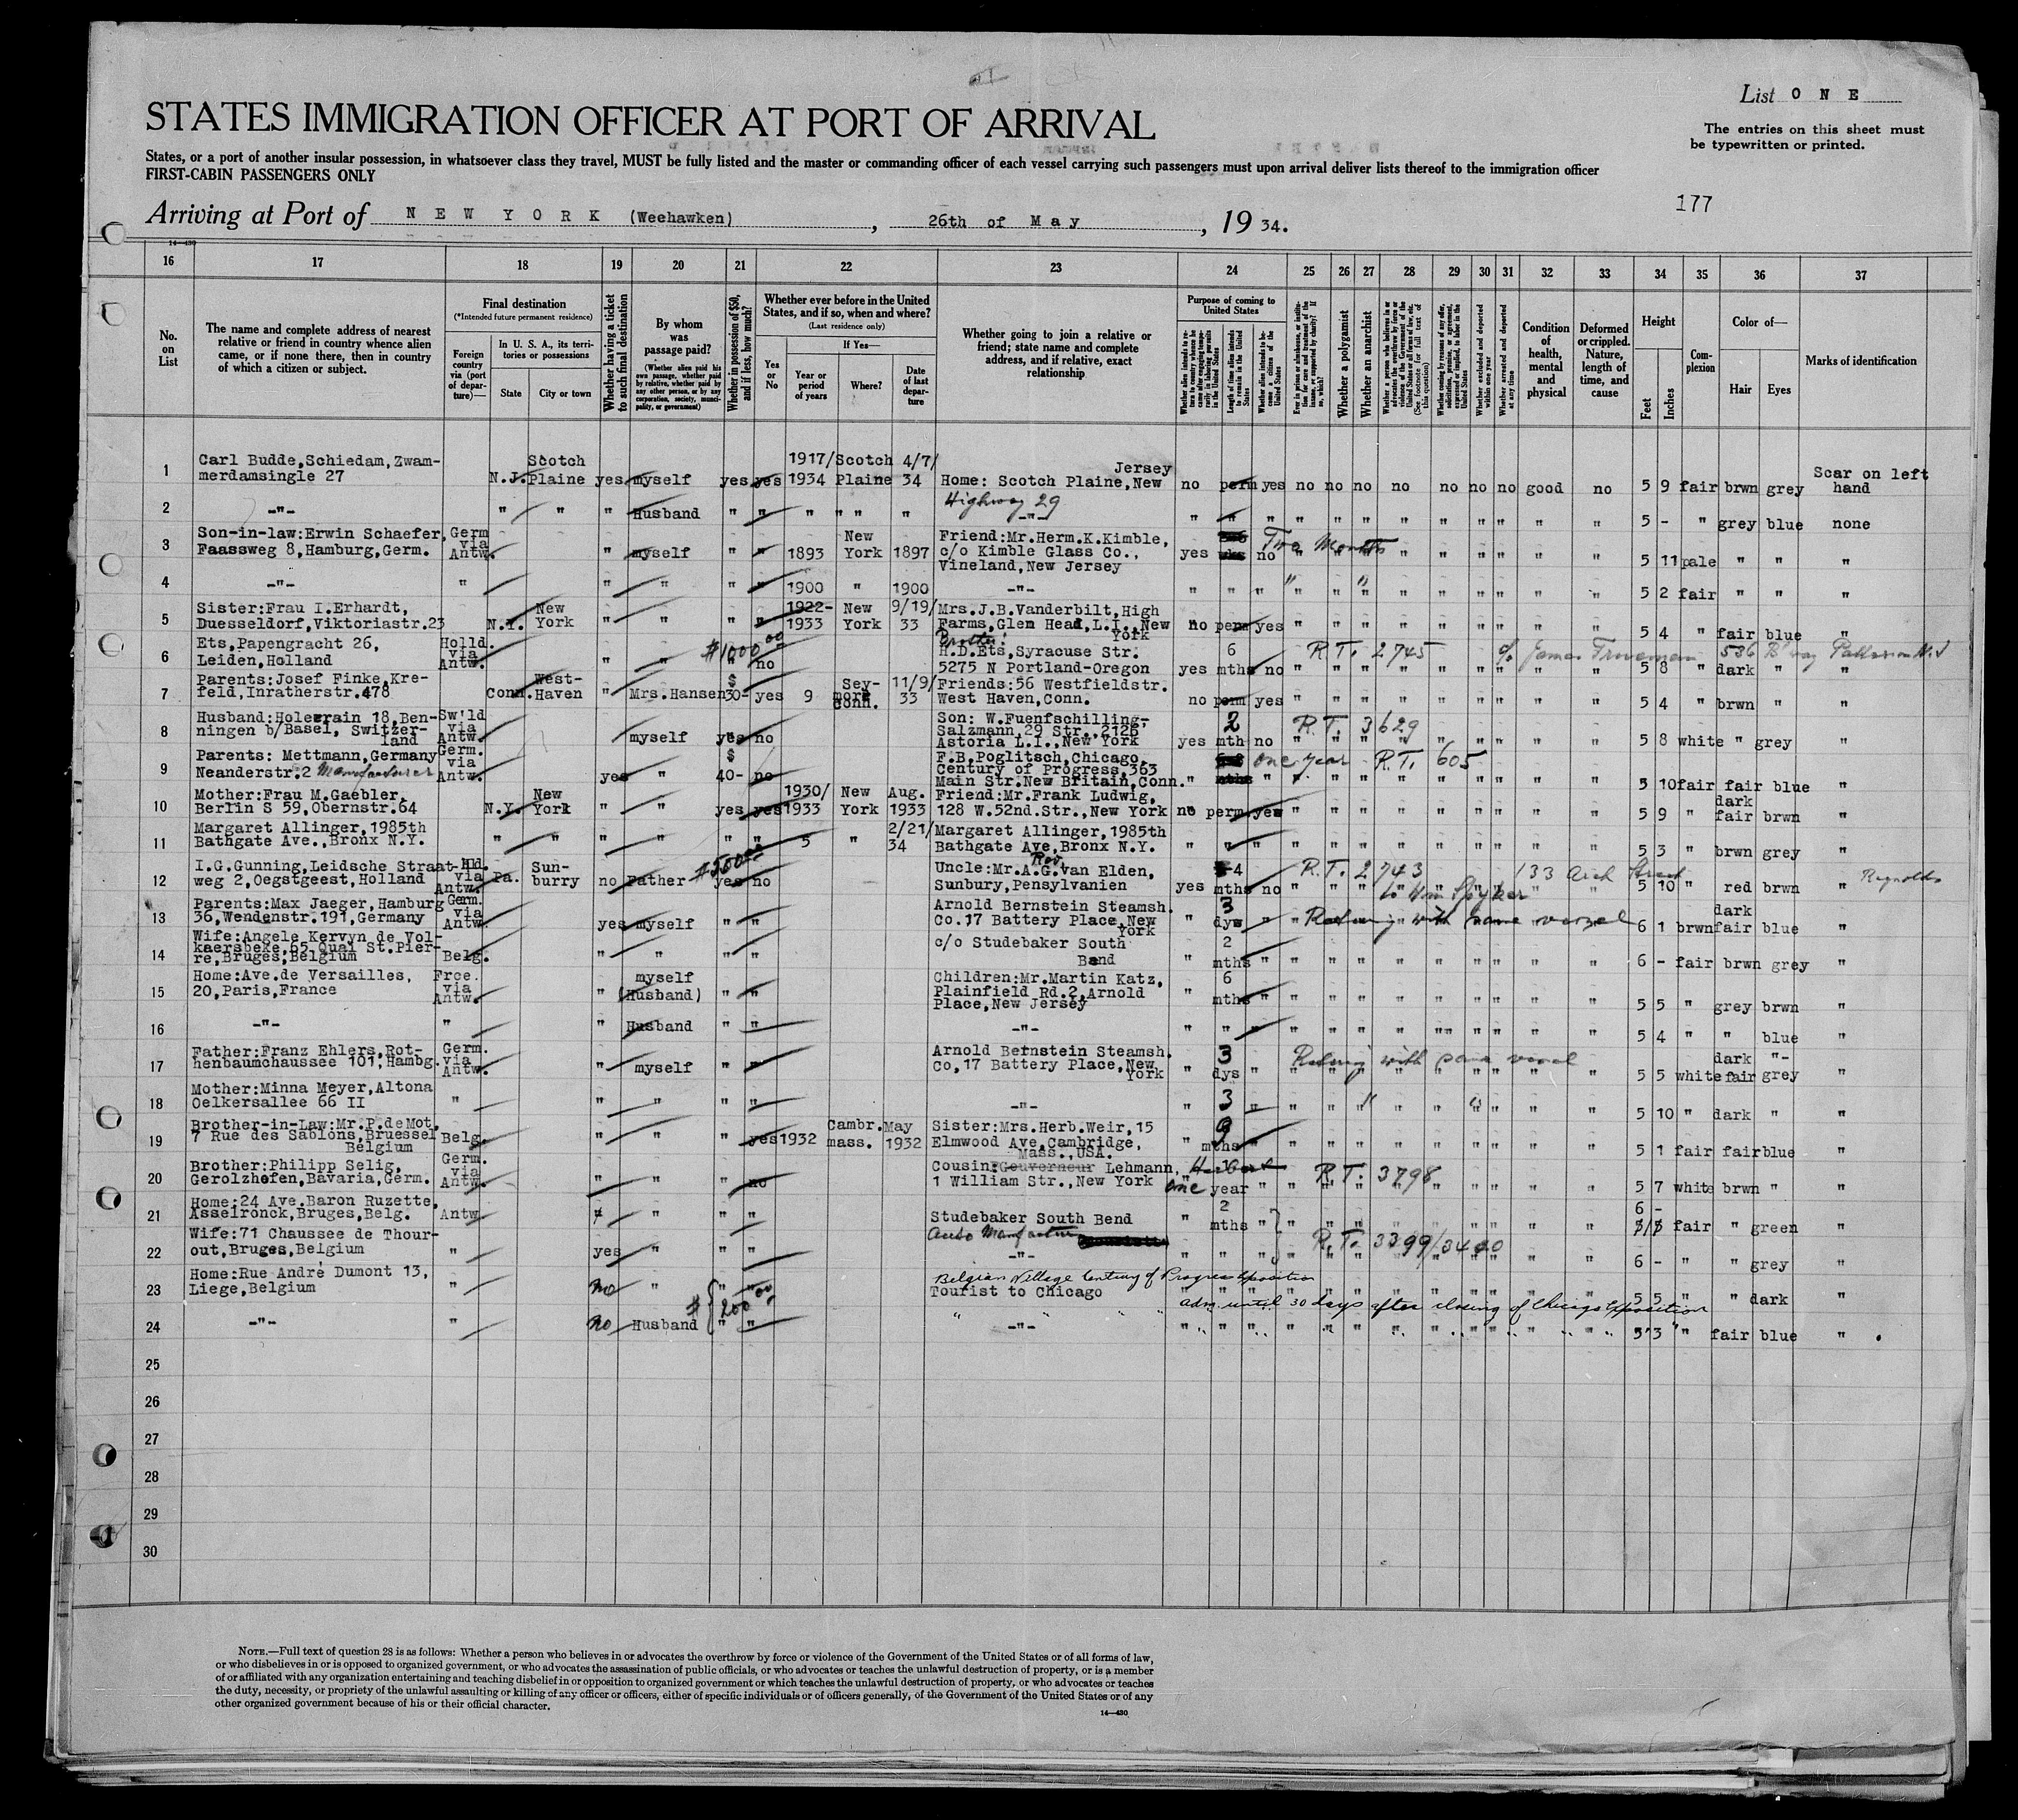 List ONE
STATES IMMIGRATION OFFICER AT PORT OF ARRIVAL
The entries on this sheet must
be typewritten or printed.
States, or a port of another insular possession, in whatsoever class they travel, MUST be fully listed and the master or commanding officer of each vessel carrying such passengers must upon arrival deliver lists thereof to the immigration officer
FIRST-CABIN PASSENGERS ONLY
177
Arriving at Port of NEW YORK (Weehawken), 26th of May, 1934.
14-430
16 17 18 19 20 21 22 23 24 25 26 27 28 29 30 31 32 33 34 35 36 37
No. on List
The name and complete address of nearest relative or friend in country whence alien came, or if none there, then in country of which a citizen or subject.
Final destination
(*Intended future permanent residence)
Foreign country via (port of departure)—
In U. S. A., its territories or possessions
State
City or town
Whether having a ticket to such final destination
By whom was passage paid?
(Whether alien paid his own passage, whether paid by relative, whether paid by any other person, or by any corporation, society, municipality, or government)
Whether in possession of $50, and if less, how much?
Whether ever before in the United States, and if so, when and where?
(Last residence only)
Yes or No
If Yes—
Year or period of years
Where?
Date of last departure
Whether going to join a relative or friend; state name and complete address, and if relative, exact relationship
Purpose of coming to United States
Length of time alien intends to remain in the United States
Whether alien intends to become a citizen of the United States
Whether a polygamist
Whether an anarchist
Whether excluded and deported within one year
Whether arrested and deported at any time
Condition of health, mental and physical
Deformed or crippled. Nature, length of time, and cause
Height
Feet
Inches
Complexion
Color of—
Hair
Eyes
Marks of identification
1 Carl Budde,Schiedam,Zwam- Scotch 1917/ Scotch 4/7/ Jersey Scar on left
merdamsingle 27 N.J. Plaine yes myself yes yes 1934 Plaine 34 Home: Scotch Plaine,New no perm yes no no no no no no no good no 5 9 fair brwn grey hand
2 -"- " " " Husband " " " " " " Highway 29 -"- " " " " " " " " " " " " 5 - " grey blue none
3 Son-in-law:Erwin Schaefer, Germ New Friend:Mr.Herm.K.Kimble, Two Months
Faassweg 8,Hamburg,Germ. via Antw. " myself " " 1893 York 1897 c/o Kimble Glass Co., yes no " " " " " " " " " 5 11 pale " " "
Vineland,New Jersey
4 -"- " " " " " 1900 " 1900 -"- " " " " " " " " " " " " 5 2 fair " " "
5 Sister:Frau I.Erhardt, New 1922- New 9/19/ Mrs.J.B.Vanderbilt,High
Duesseldorf,Viktoriastr.23 N.Y. York " " " " 1933 York 33 Farms,Glen Head,L.I.,New York no perm yes " " " " " " " " " 5 4 " fair blue "
6 Ets,Papengracht 26, Holld. $1000 00 Brother: 6 R.T. 2745 c/o James 536
Leiden,Holland via Antw. " " " no H.D.Ets,Syracuse Str. yes mths no " " " " " " " " " 5 8 " dark " "
5275 N Portland-Oregon
7 Parents:Josef Finke,Kre- West- $ Sey- 11/9/ Friends:56 Westfieldstr.
feld,Inratherstr.478 Conn. Haven " Mrs.Hansen 30- yes 9 more Conn. 33 West Haven,Conn. no perm yes " " " " " " " " " 5 4 " brwn " "
8 Husband:Holeerain 18,Ben- Sw'ld Son: W.Fuenfschilling- 2 R.T. 3629
ningen b/Basel, Switzer- via Salzmann,29 Str.,2126
land Antw. myself yes no Astoria L.I.,New York yes mth no " " " " " " " " " 5 8 white " grey "
9 Parents: Mettmann,Germany Germ. $ F.B.Poglitsch,Chicago, one year R.T. 605
Neanderstr.2 Manufacturer via Antw. yes " 40- no Century of Progress,363
Main Str.New Britain,Conn. " mths " " " " " " " " " " 5 10 fair fair blue "
10 Mother:Frau M.Gaebler, New 1930/ New Aug. Friend:Mr.Frank Ludwig, dark
Berlin S 59,Obernstr.64 N.Y. York " " yes yes 1933 York 1933 128 W.52nd.Str.,New York no perm yes " " " " " " " " " 5 9 " fair brwn "
11 Margaret Allinger,1985th 2/21/ Margaret Allinger,1985th
Bathgate Ave.,Bronx N.Y. " " " " " " 5 " 34 Bathgate Ave,Bronx N.Y. " " " " " " " " " " " " 5 3 " brwn grey "
12 I.G.Gunning,Leidsche Straat- Hld. Sun- $500 00 Uncle:Mr.Rev.A.G.van Elden, 4 R.T. 2743 133 Arch Street Reynolds
weg 2,Oegstgeest,Holland via Antw. Pa. burry no Father yes no Sunbury,Pensylvanien yes mths no " " " " " " " " " 5 10 " red brwn "
13 Parents:Max Jaeger,Hamburg Germ. Arnold Bernstein Steamsh. 3 dark
36,Wendenstr.191,Germany via Antw. yes myself " " Co.17 Battery Place,New York " dys " " Returning with same vessel 6 1 brwn fair blue "
14 Wife:Angele Kervyn de Vol-
kaersbeke,65 Quai St.Pier- c/o Studebaker South 2
re,Bruges,Belgium Belg. " " " " Bend " mths " " " " " " " " " " 6 - fair brwn grey "
15 Home:Ave.de Versailles, Frce. myself Children:Mr.Martin Katz, 6
20,Paris,France via Antw. " (Husband) " " Plainfield Rd.2,Arnold " mths " " " " " " " " " " 5 5 " grey brwn "
Place,New Jersey
16 -"- " " Husband " " -"- " " " " " " " "" " " " " 5 4 " " blue "
17 Father:Franz Ehlers,Rot- Germ. Arnold Bernstein Steamsh. 3 dark "-
henbaumchaussee 101,Hambg. via Antw. " myself " " Co,17 Battery Place,New York " dys " Returning with same vessel 5 5 white fair grey "
18 Mother:Minna Meyer,Altona
Oelkersallee 66 II " " " " " -"- " 3 " " " " " " " " " " 5 10 " dark " "
19 Brother-in-Law:Mr.P.deMot, Cambr. May Sister:Mrs.Herb.Weir,15
7 Rue des Sablons,Bruessel Belg. " " " yes 1932 mass. 1932 Elmwood Ave,Cambridge, " mths " " " " " " " " " " 5 1 fair fair blue "
Belgium Mass.,USA.
20 Brother:Philipp Selig, Germ. Cousin:Gouverneur Lehmann, Herbert R.T. 3798
Gerolzhofen,Bavaria,Germ. via Antw. " " " no 1 William Str.,New York one year " " " " " " " " " " 5 7 white brwn " "
21 Home:24 Ave.Baron Ruzette, 2 6 -
Asselronck,Bruges,Belg. Antw. " " " Studebaker South Bend " mths " " " " " " " " " " fair " green "
22 Wife:71 Chaussee de Thour- Auto Manufacture R.T. 3399/3400
out,Bruges,Belgium " yes " " " -"- " " " " " " " " " " " " 6 - " " grey "
23 Home:Rue André Dumont 13, Belgian Village Century of Progress Exposition
Liege,Belgium " no " " " Tourist to Chicago " " " " " " " " " " " " 5 5 " " dark "
$ 200 00 adm. until 30 days after closing of Chicago Exposition
24 -"- " no Husband " " -"- " " " " " " " " " " " " 5'3 " fair blue "
25
26
27
28
29
30
NOTE.—Full text of question 28 is as follows: Whether a person who believes in or advocates the overthrow by force or violence of the Government of the United States or of all forms of law,
or who disbelieves in or is opposed to organized government, or who advocates the assassination of public officials, or who advocates or teaches the unlawful destruction of property, or is a member
of or affiliated with any organization entertaining and teaching disbelief in or opposition to organized government or which teaches the unlawful destruction of property, or who advocates or teaches
the duty, necessity, or propriety of the unlawful assaulting or killing of any officer or officers, either of specific individuals or of officers generally, of the Government of the United States or of any
other organized government because of his or their official character.
14—430